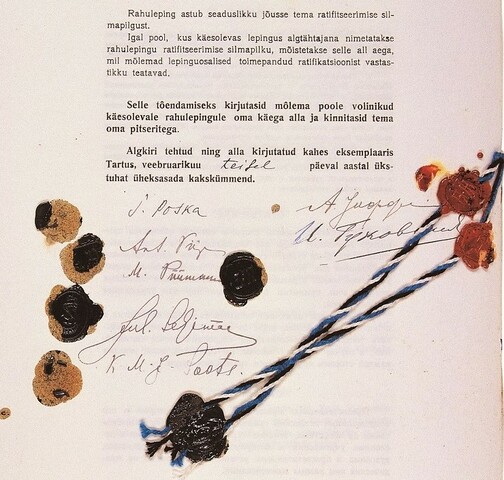 Rahuleping astub seaduslikku jõusse tema ratifitseerimise sil-
mapilgust.
Igal pool, kus käesolevas lepingus algtähtajana nimetatakse
rahulepingu ratifitseerimise silmapilku, mõistetakse selle all aega,
mil mõlemad lepinguosalised toimepandud ratifikatsioonist vastas-
tikku teatavad.
Selle tõendamiseks kirjutasid mõlema poole volinikud
käesolevale rahulepingule oma käega alla ja kinnitasid tema
oma pitseritega.
Algkiri tehtud ning alla kirjutatud kahes eksemplaaris
Tartus, veebruarikuu teisel päeval aastal üks-
tuhat üheksasada kakskümmend.
J. Poska
А. Иоффе
Ant. Piip
И. Гуковский
M. Püümann
Jul. Seljamaa